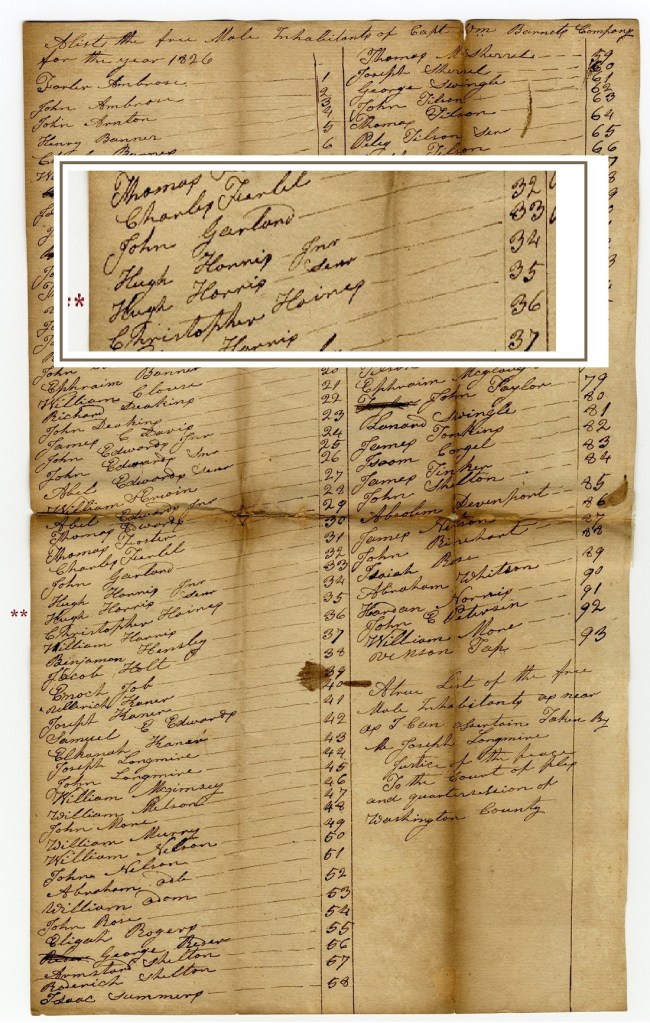 A lists the free Male Inhabitants of Capt Wm Barnets Company
for the year 1826
Ambrose 1
John Ambrose 2
John Arnton 3
Henry Banner 5
6
Thomas
Charles 32
John Garland 33
Hugh Harris Jnr 34
Hugh Harris Senr 35
Christopher Haines 36
Harris 37
**
Ephraim Banner
William Clouse 21
Richard Deakins 22
John Deakins 23
James C Davis 24
John Edwards Jnr 25
John Edwards Snr 26
Abel Edwards Senr 27
William Erwin 28
Abel Edwards Jnr 29
Thomas Edwards 30
Thomas Foster 31
Charles 32
John Garland 33
Hugh Harris Jnr 34
Hugh Harris Senr 35
Christopher Haines 36
William Harris 37
Benjamon Hensley 38
Jacob Holt 39
Enoch Job 40
Ullerich Kaner 41
Joseph Kaner
Samuel E Edwards 42
Elkanah Kaner 43
Joseph Longmire 44
John Longmire 45
William McGimsey 46
William Nelson 47
John More 48
William Murry 49
William Nelson 50
John Nelson 51
Abraham 52
William Odom 53
John Rose 54
Elijah Rogers 55
George Reser 56
Armstard Shelton 57
Roderich Shelton 58
Isaac Summers
Thomas McSherrel 59
Joseph Sherrel 60
George Swingle 61
John Tilson 62
Thomas Tilson 63
Peleg Tilson Senr 64
Tilson 65
66
Ephraim
John Taylor 79
Lanard Swingle 80
James Tonkins 81
Isoom Corgel 82
James Tinker 83
John Shelton 84
Absolim Devenport 85
James Nelson 86
John Rinehart 87
Isaiah Rose 88
Abraham Whitson 89
Hardan Norris 90
John C Petersin 91
William More 92
Vinson Tap 93
A true List of the free
Male Inhabitants as near
as I Can asertain Taken By
Me Joseph Longmire
Justice of the peace
To the Count of pleas
and quartersession of
Washington County